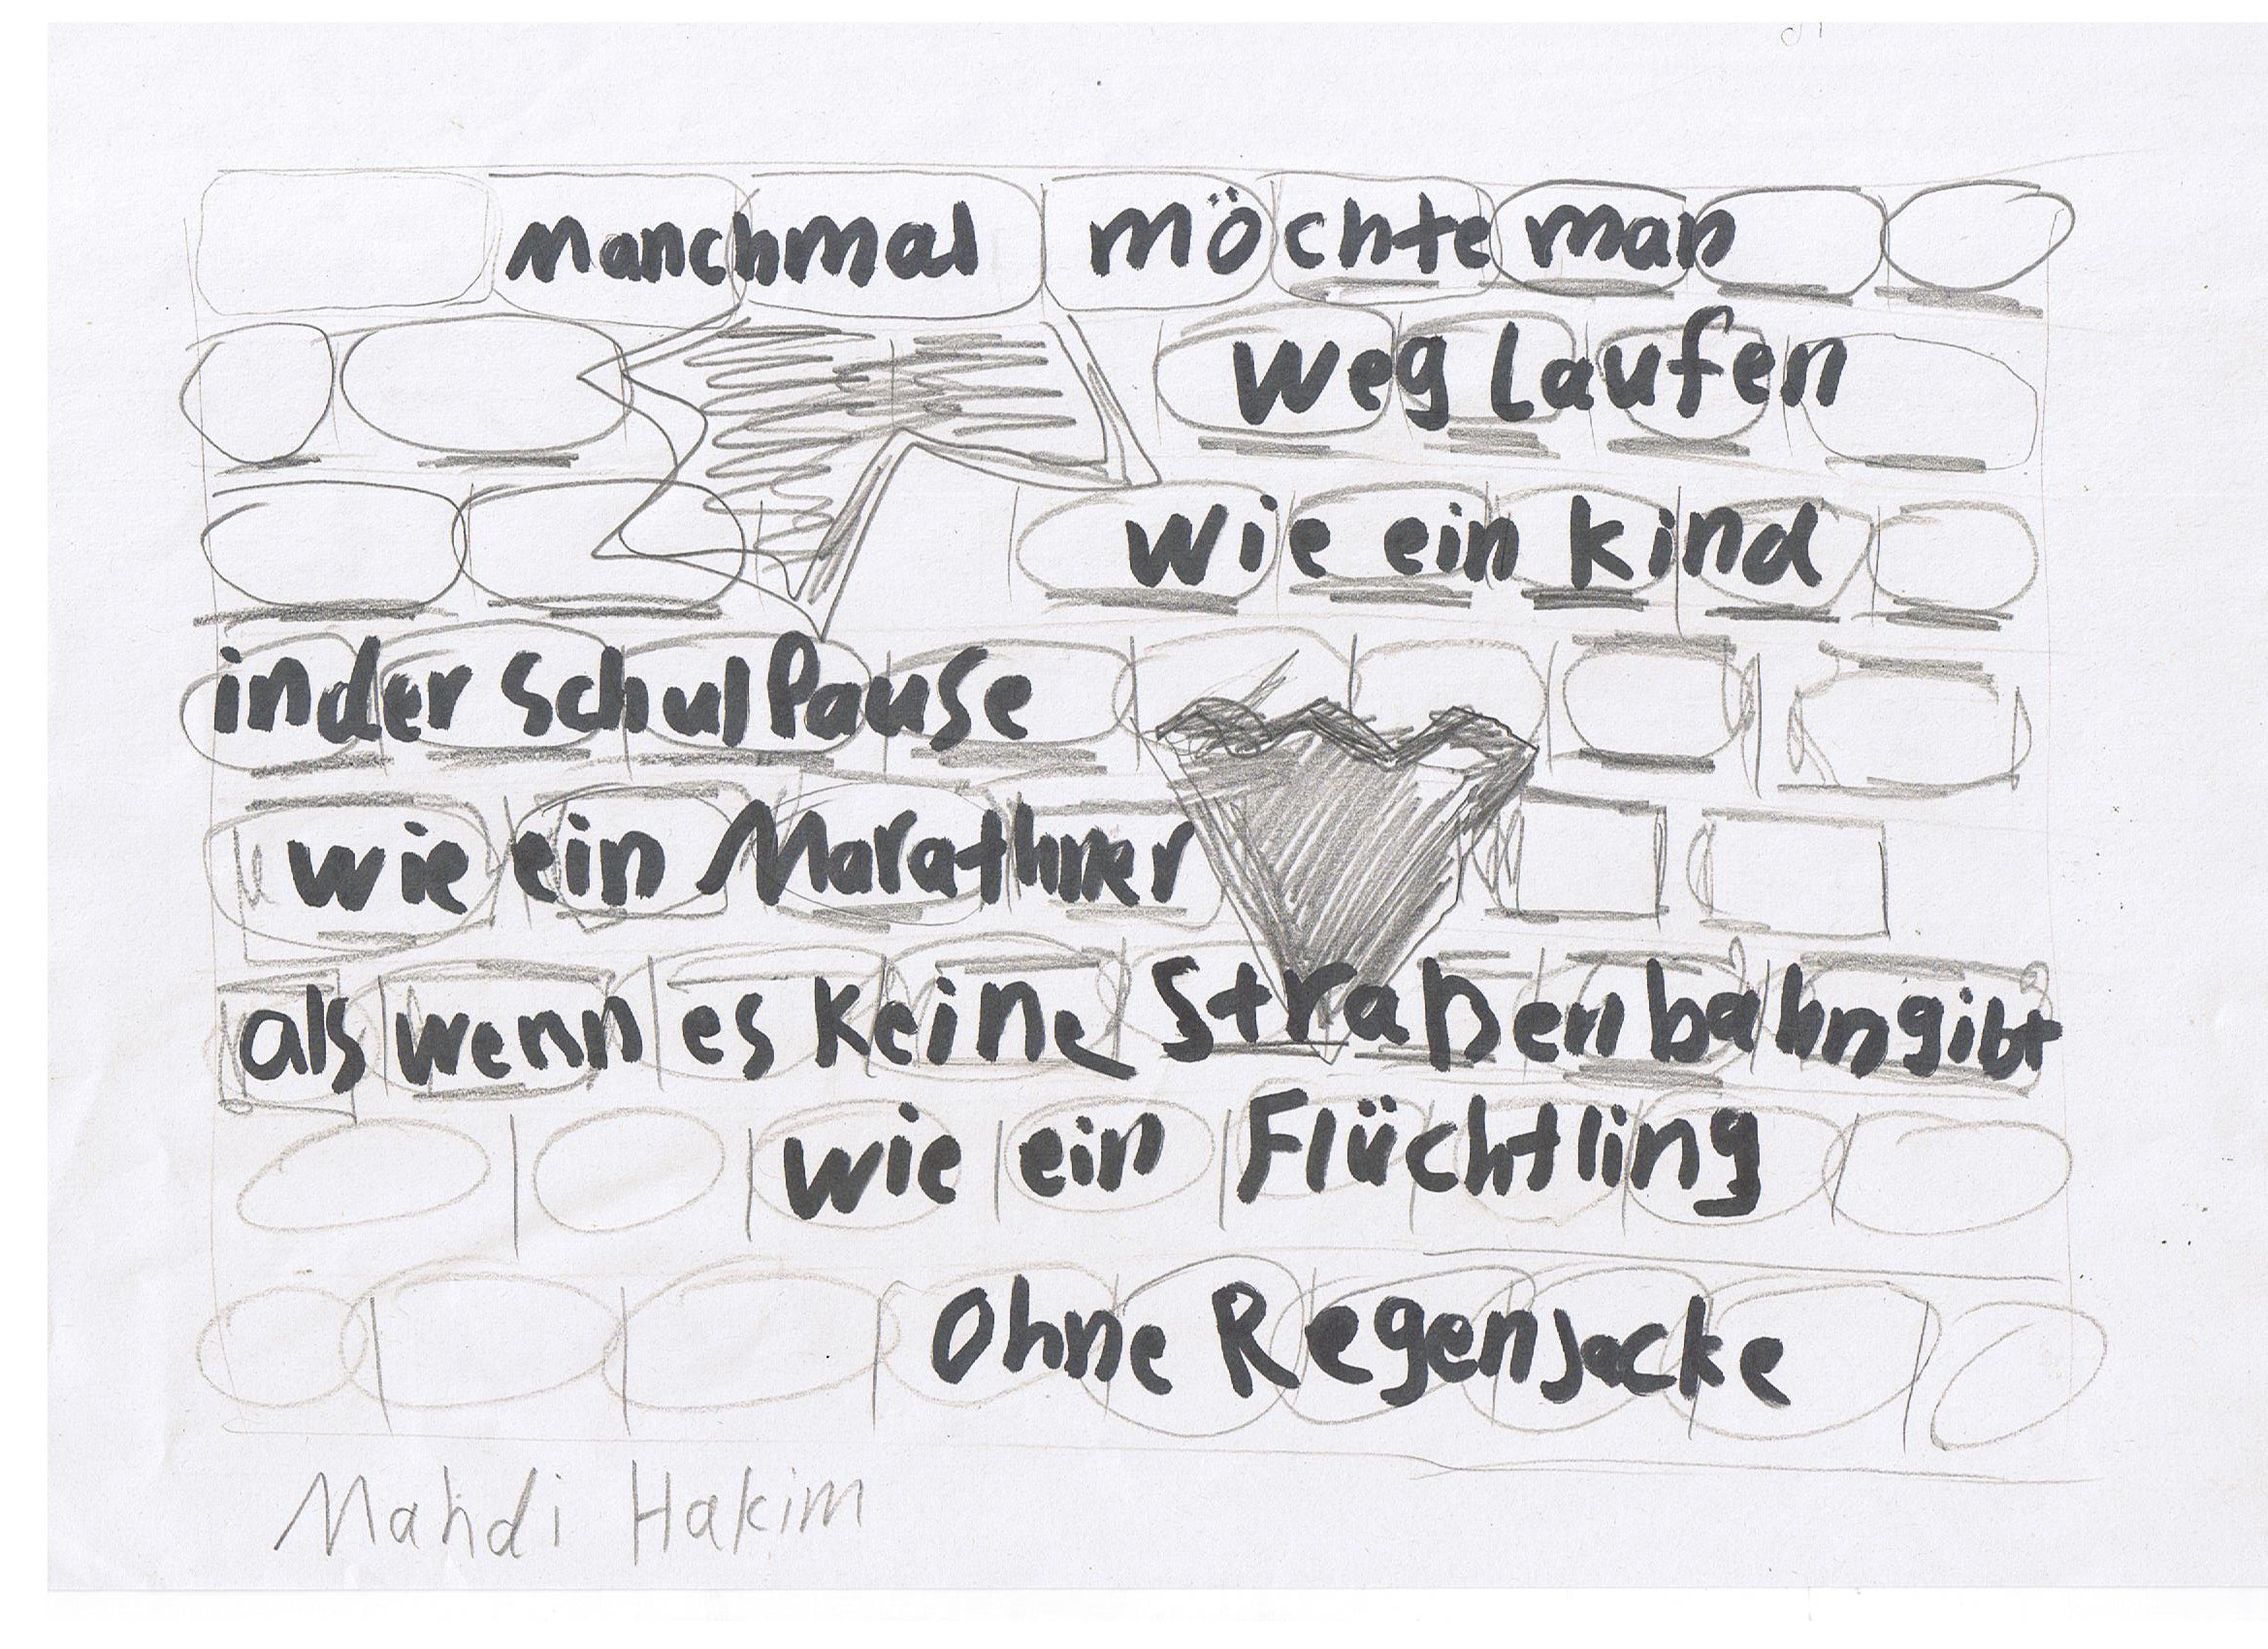 Manchmal möchte man
weg laufen
wie ein kind
in der SchulPause
wie ein Marathner
als wenn es keine Straßenbahn gibt
wie ein Flüchtling
Ohne Regenjacke
Mahdi Hakim